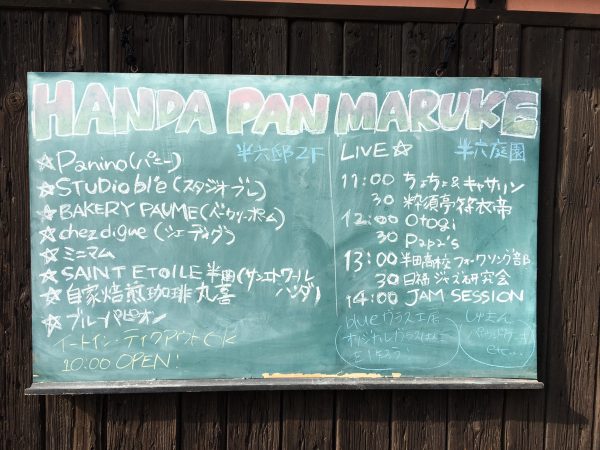 HANDA PAN MARUKE
半六邸2F
☆Panino(パニーノ)
☆STUDio ble(スタジオブレ)
☆BAKERY PAUME(バーカリーポム)
☆chez digue(シェディグ)
☆ミニマム
☆SAINT ETOILE 半田(サンエトワールハンダ)
☆自家焙煎珈琲 丸喜
☆ブルーパピオン
イートイン・テイクアウトOK
10:00 OPEN!
LIVE☆ 半六庭園
11:00 ちょちょ&キャサリン
30
12:00 Otogi
30 Papa's
13:00 半田高校フォークソング部
30 日福ジャズ研究会
14:00 JAM SESSION
blueガラス工房
オリジナルガラス
etc...